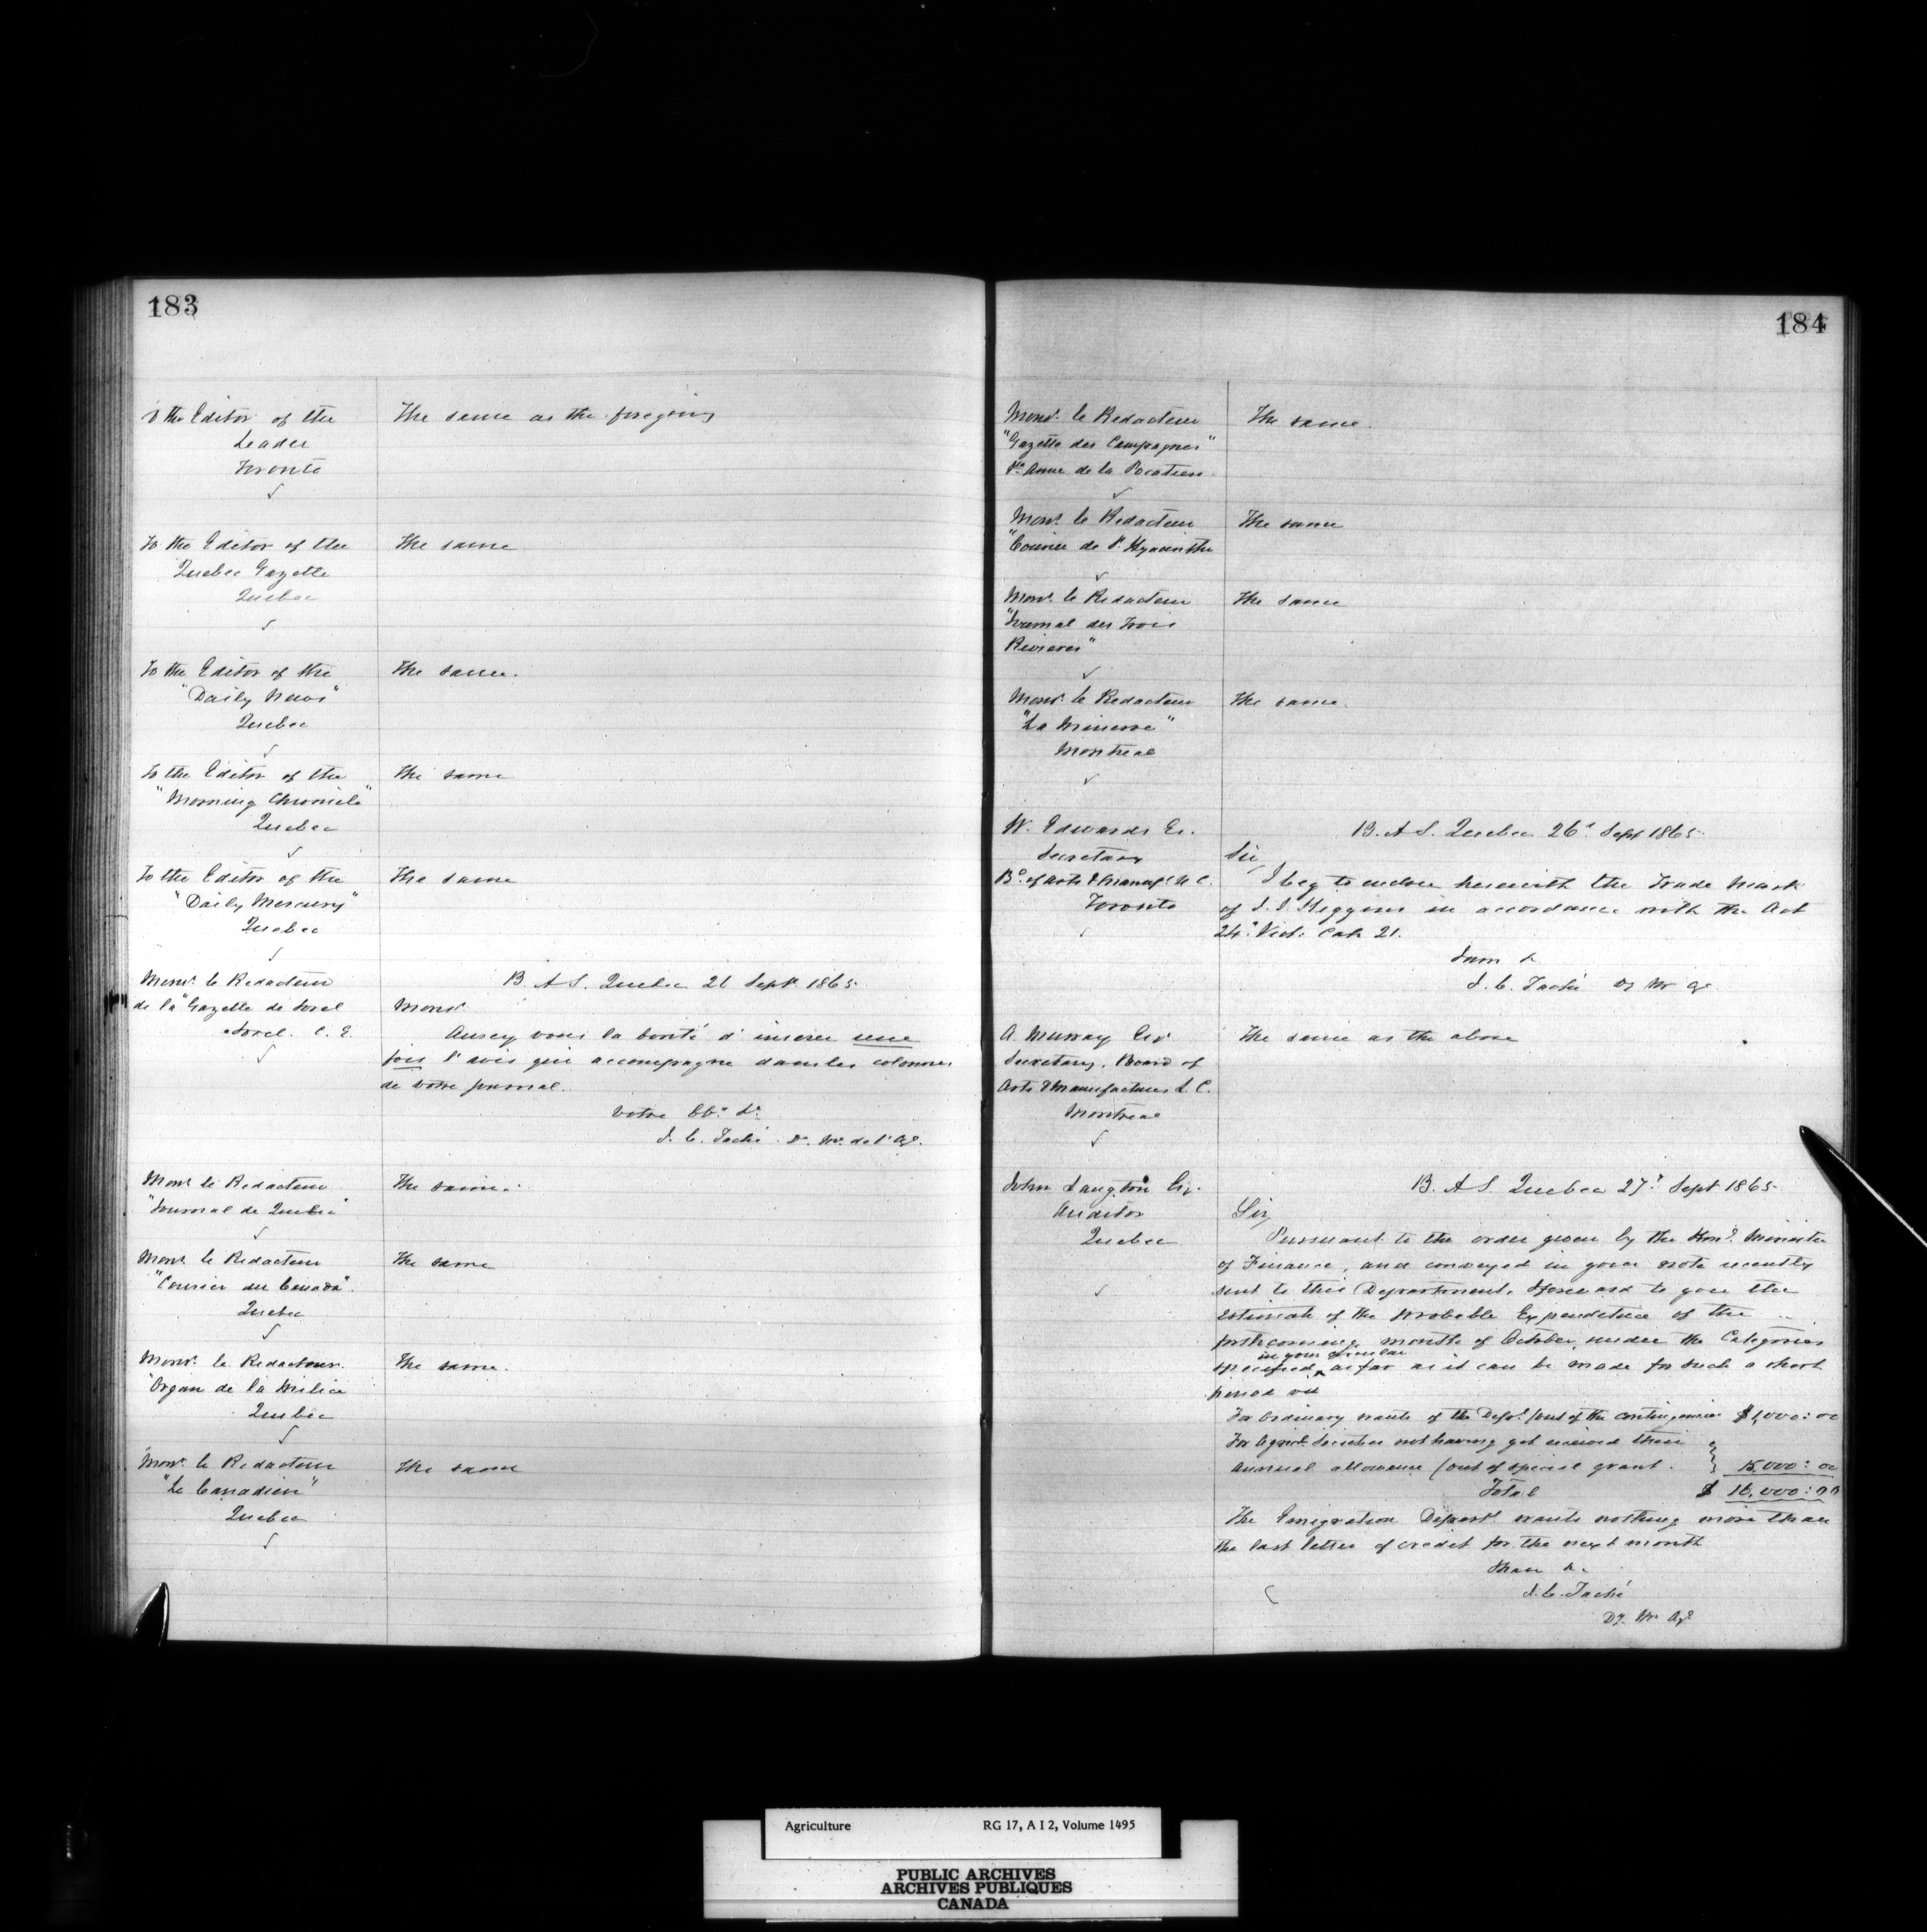 183
To the Editor of the
Leader
Toronto
The same as the foregoing
To the Editor of the
Quebec Gazette
Quebec
The same
To the Editor of the
"Daily News"
Quebec
The same.
To the Editor of the
"Morning Chronicle"
Quebec
The same
To the Editor of the
"Daily Mercury"
Quebec
The same
Monsr. le Redacteur
de la "Gazette de Sorel
Sorel. C. E.
B. A S. Quebec 26 Sept. 1865.
Monsr.
Ausey vous la bonté d'inserer une
fois l'avis qui accompagne dans les colonnes
de votre journal.
Votre Obt. Sr.
J. C. Taché. D. M. de l'Ag.
Monsr le Redacteur
"Journal de Quebec"
The same.
Monsr. le Redacteur
"Courier du Canada".
Quebec
The same
Monsr. le Redacteur.
"Organ de la Milice
Quebec
The same.
Monsr. le Redacteur
"Le Canadien"
Quebec
The same
184
Monsr. le Redacteur
"Gazette des Campagnes"
Ste. Anne de la Pocatiere
The same.
Monsr. le Redacteur
"Courier de St. Hyacinthe
The same
Monsr. le Redacteur
"Journal des Trois
Rivieres"
The same
Monsr. le Redacteur
"La Minerve"
Montreal
The same.
W. Edwards Es.
Secretary
Bd. of Arts & Manufs. U. C.
Toronto
B. A S. Quebec 26d. Sept 1865.
Sir
I beg to enclose herewith the Trade Mark
of J. J. Higgins in accordance with the Act
24. Vict. Cap. 21.
I am &
J. C. Taché Dy M Ag.
A. Murray Esr
Secretary, Board of
Arts & Manufactures L. C.
Montreal
The same as the above
John Langton Esr.
Auditor
Quebec
B. A S. Quebec 27th Sept 1865.
Sir,
Pursuant to the order given by the Hond. Minister
of Finance, and conveyed in your note recently
sent to this Department, I forward to you the
Estimate of the probable Expenditure of the
forthcoming month of October, under the Categories
in your circular
specified, as far as it can be made for such a short
period viz
For Ordinary wants of the Dept. (out of the contingencies $1,000:00
For Agricl. Societies not having yet received their
annual allowance (out of special grant. 15,000:00
Total $ 16,000:00
The Emigration Departt. wants nothing more than
the last letter of credit for the next month
I have &.
J. C. Taché
Dy. M. Agl
Agriculture RG 17, A I 2, Volume 1495
PUBLIC ARCHIVES
ARCHIVES PUBLIQUES
CANADA